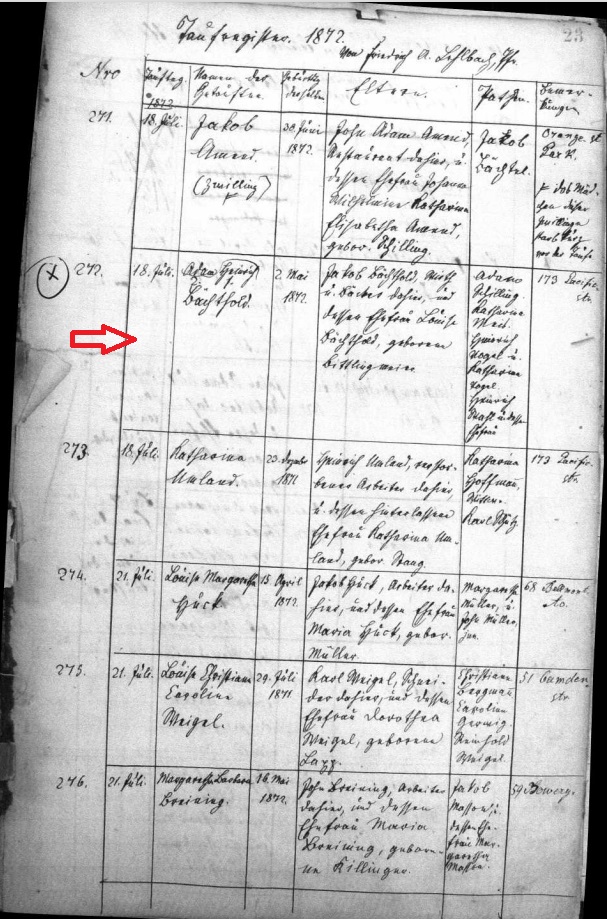 Taufregister. 1872.
23
von Friedrich A. Lehlbach, Pfr.
Nro
Tauftag.
1872
Namen der
Getauften.
Geburtstag
derselben
Eltern.
Pathen.
Bemer-
kungen
271.
18. Juli.
Jakob
Amend.
(Zwilling)
30 Juni
1872.
John Adam Amend,
Restaurant dahier, u.
dessen Ehefrau Johanna
Wilhelmine Katharina
Elisabetha Amend,
gebor. Schilling.
Jakob
Bächtel.
Orange st
Park.
das Mäd-
chen dieser
Zwillinge
starb
vor der Taufe
272.
18. Juli.
Adam Heinrich
Bächthold.
2. Mai
1872.
Jakob Bächthold, Wirth
u. Bäcker dahier, und
dessen Ehefrau Louise
Bächthold, geborene
Bittlingmeier
Adam
Schilling.
Katharina
Heinrich
Vogel u.
Katharina
Vogel.
Heinrich
Stahl u. dessen
Ehefrau
173 Pacific
str.
273
18. Juli.
Katharina
Umland.
23. Dezember
1871
Heinrich Umland, verstor-
bener Arbeiter dahier,
u. dessen hinterlassene
Ehefrau Katharina Um-
land, gebor. Stang.
Katharina
Hoffmann,
Karl Schütz
173 Pacific
str.
274.
21. Juli.
Louise Margaretha
Hück
13 April
1872.
Jakob Hück, Arbeiter da-
hier, und dessen Ehefrau
Maria Hück, gebor.
Müller.
Margaretha
Müller, u.
John Müller,
jun.
68
275.
21. Juli.
Louise Christiane
Caroline
Weigel.
29. Juli
1871.
Karl Weigel, Schnei-
der dahier, und dessen
Ehefrau Dorothea
Weigel, geborene
Lapp.
Christiane
Bergman
Caroline
Gerwig
Reinhold
Weigel.
51 Camden
str.
276.
21. Juli.
Margaretha Barbara
Breining.
16. Mai
1872.
John Breining, Arbeiter
dahier, und dessen
Ehefrau Maria
Breining, gebore-
ne Killinger.
Jakob
dessen Ehe-
frau Mar-
garetha
59 Bowery.